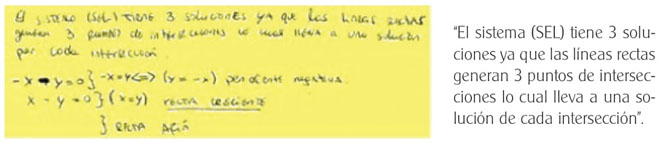 El sistema (SEL) tiene 3 soluciones ya que las líneas rectas
generan 3 puntos de intersecciones lo cual lleva a una solución
por cada intersección.
-x - y = 0 } -x = y <=> (y = -x) pendiente negativa.
x - y = 0 } (x = y) recta creciente
} recta
“El sistema (SEL) tiene 3 solu-
ciones ya que las líneas rectas
generan 3 puntos de intersec-
ciones lo cual lleva a una so-
lución de cada intersección”.